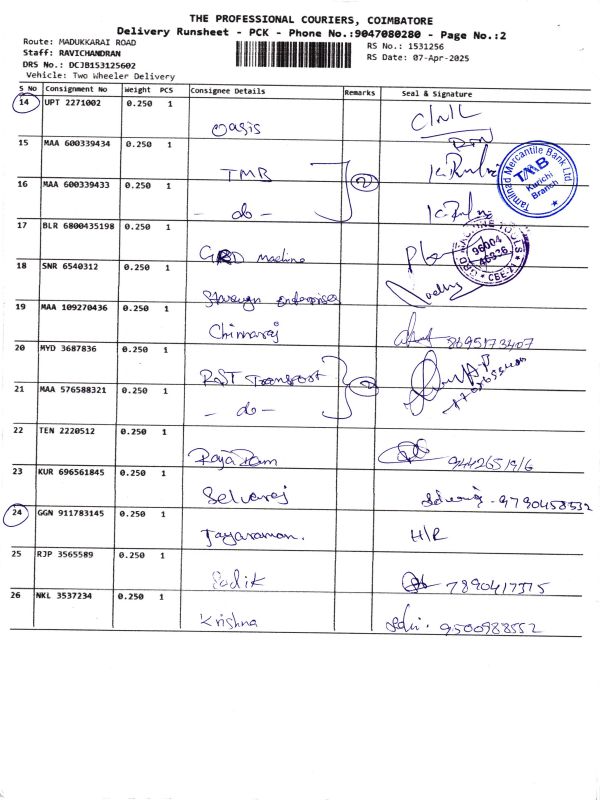 THE PROFESSIONAL COURIERS, COIMBATORE
Delivery Runsheet - PCK - Phone No.:9047080280 - Page No.:2
Route: MADUKKARAI ROAD
RS No.: 1531256
Staff: RAVICHANDRAN
RS Date: 07-Apr-2025
DRS No.: DCJB153125602
Vehicle: Two Wheeler Delivery
S No Consignment No Weight PCS Consignee Details Remarks Seal & Signature
14 UPT 2271002 0.250 1 Oasis
15 MAA 600339434 0.250 1 TMB
16 MAA 600339433 0.250 1 - do - 2
Tamilnad Mercantile Bank Ltd
TMB
Kurichi
Branch
17 BLR 6800435198 0.250 1 machine
18 SNR 6540312 0.250 1 Enterprises
19 MAA 109270436 0.250 1 Chinnaraj 8695173407
20 MYD 3687836 0.250 1 RST Transport
21 MAA 576588321 0.250 1 - do - 2
22 TEN 2220512 0.250 1 Raja Ram 94426519/6
23 KUR 696561845 0.250 1 Selvaraj 9790458532
24 GGN 911783145 0.250 1 Jayaraman. H/R
25 RJP 3565589 0.250 1 Sadik 7890417375
26 NKL 3537234 0.250 1 Krishna 9500988552